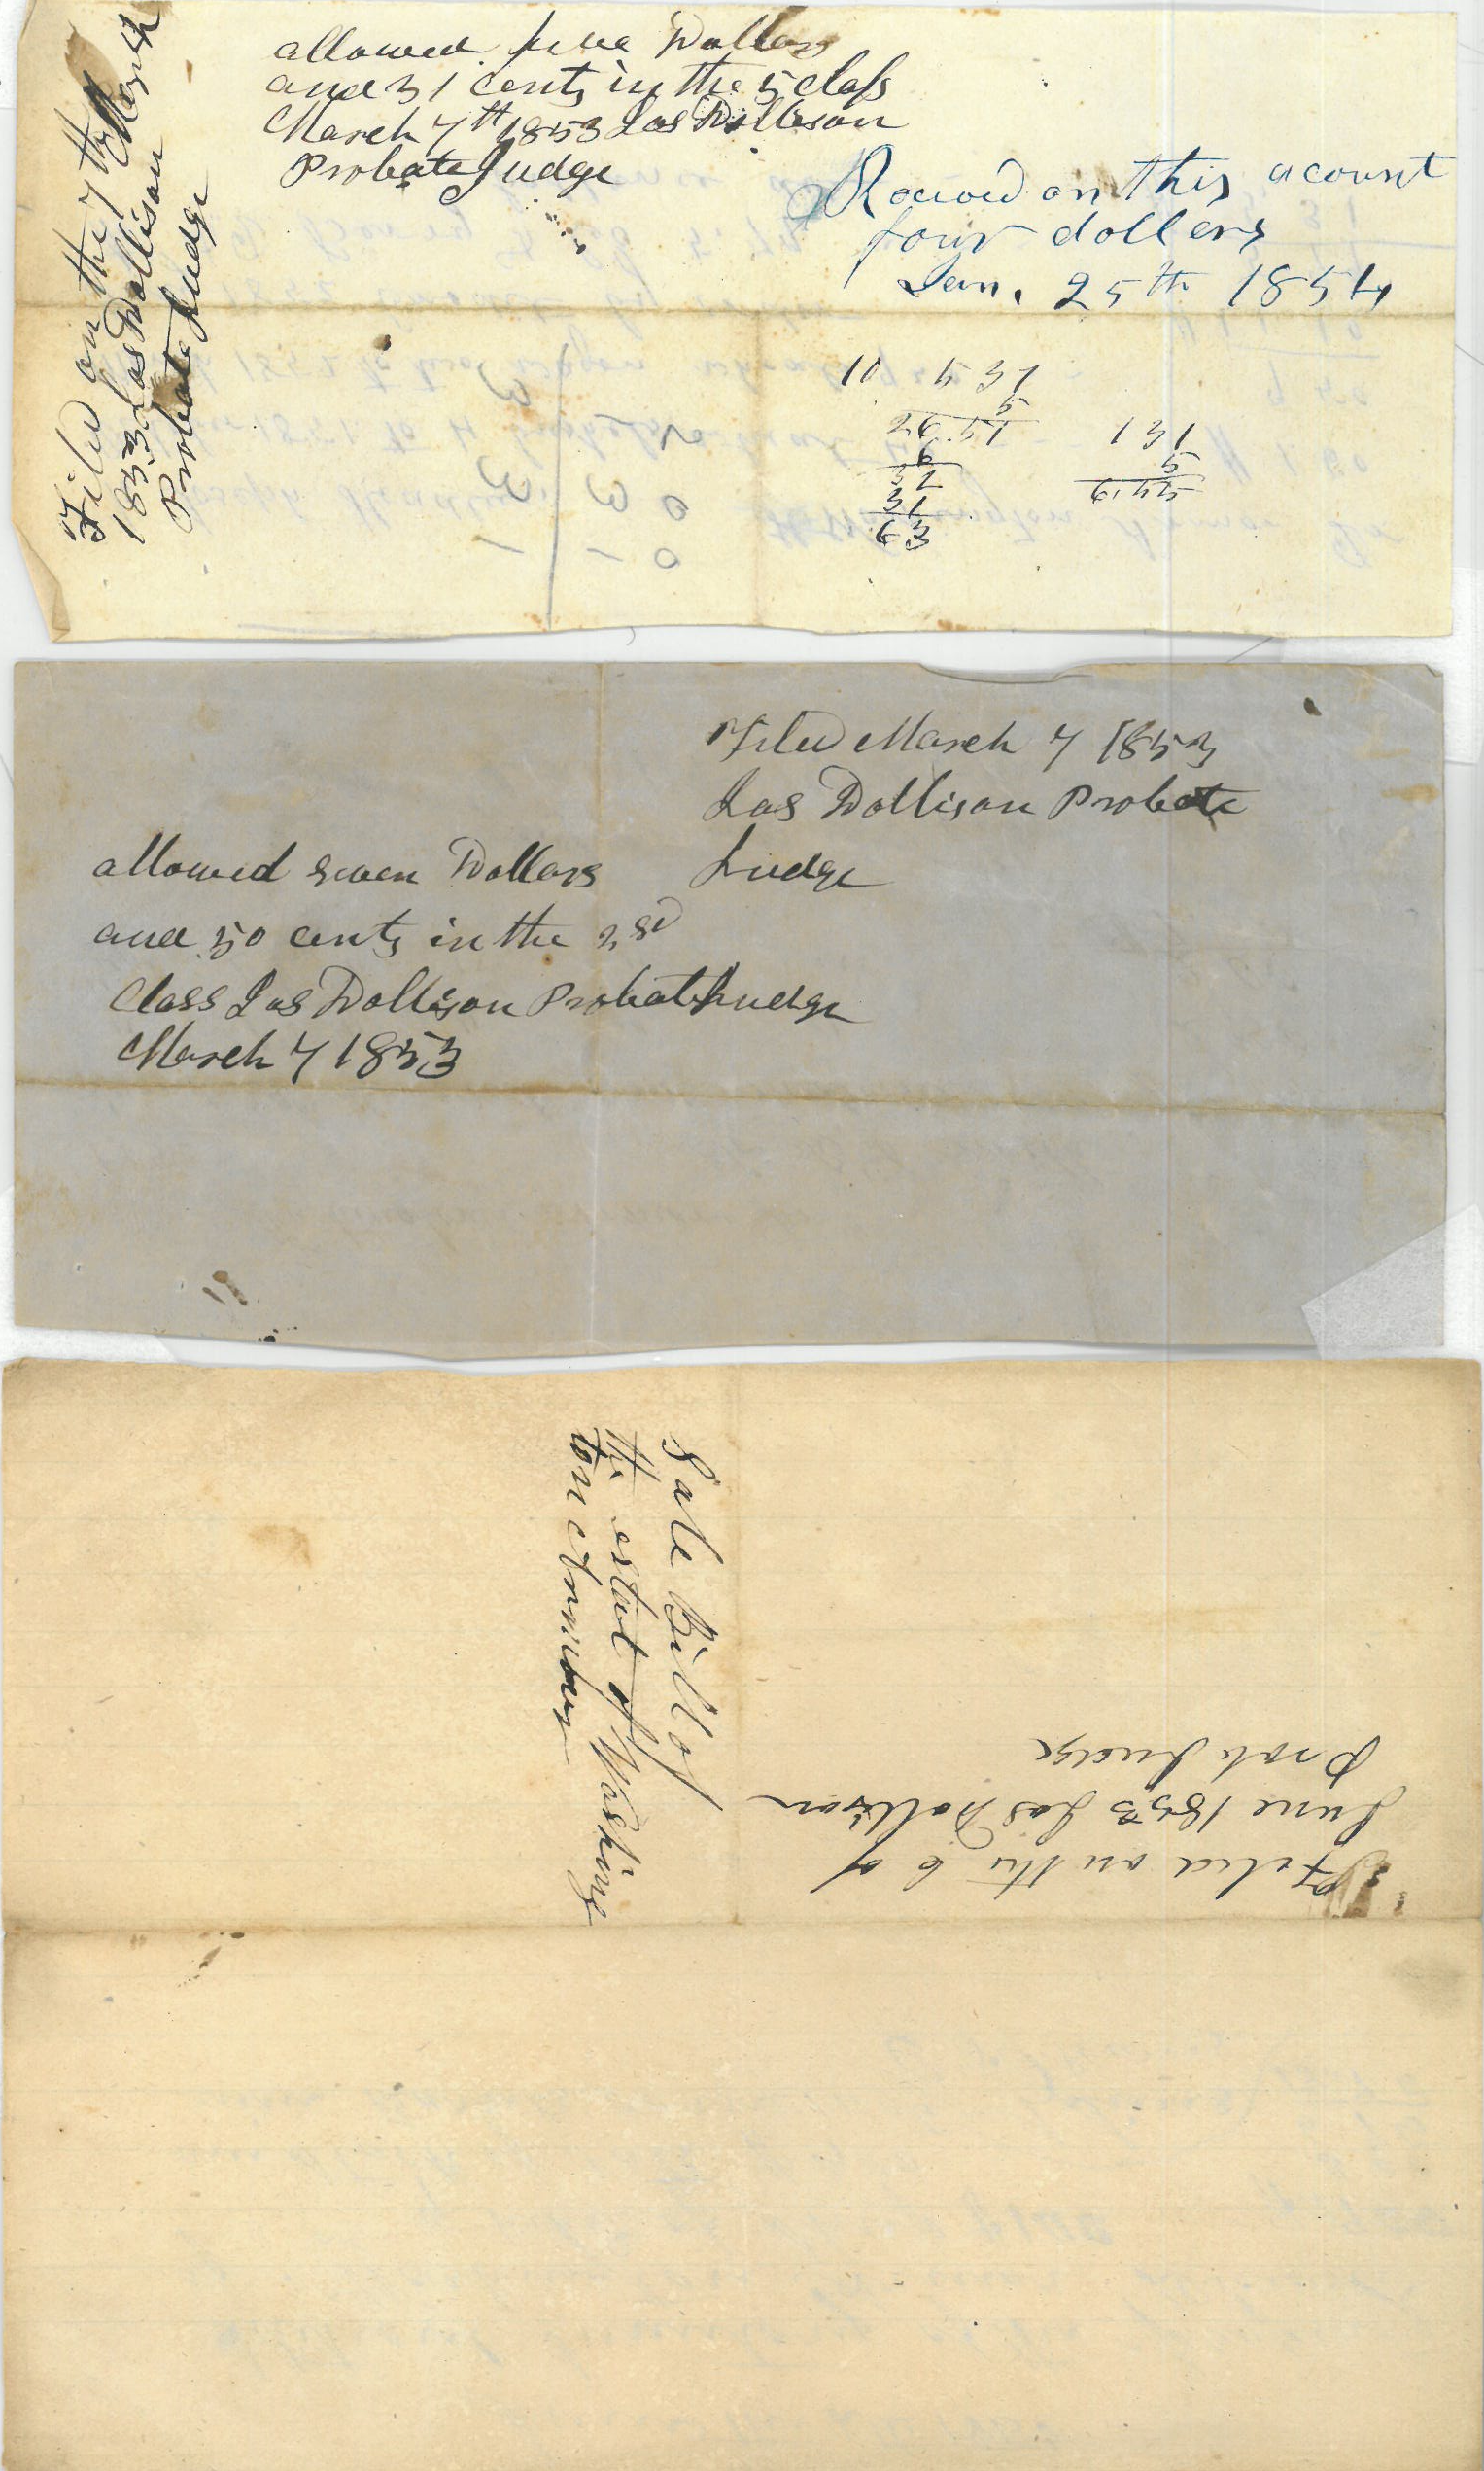 allowed five Dollars
and 31 cents in the 5 class
March 7th 1853 Jas Dollison
Probate Judge
Filed on the 7th March
1853 Jas Dollison
Probate Judge
Recived on this acount
four dollers
Jan. 25th 1854
10 5 31
5
26.51
6
32
31
63
131
5
6.55
Filed March 7 1853
Jas Dollison Probate
Judge
allowed seven Dollars
and 50 cents in the 2nd
Class Jas Dollison Probate Judge
March 7 1853
Sale Bill of
the estate of Washing
ton Armour
Filed on the 6 of
June 1853 Jas Dollison
Prob Judge